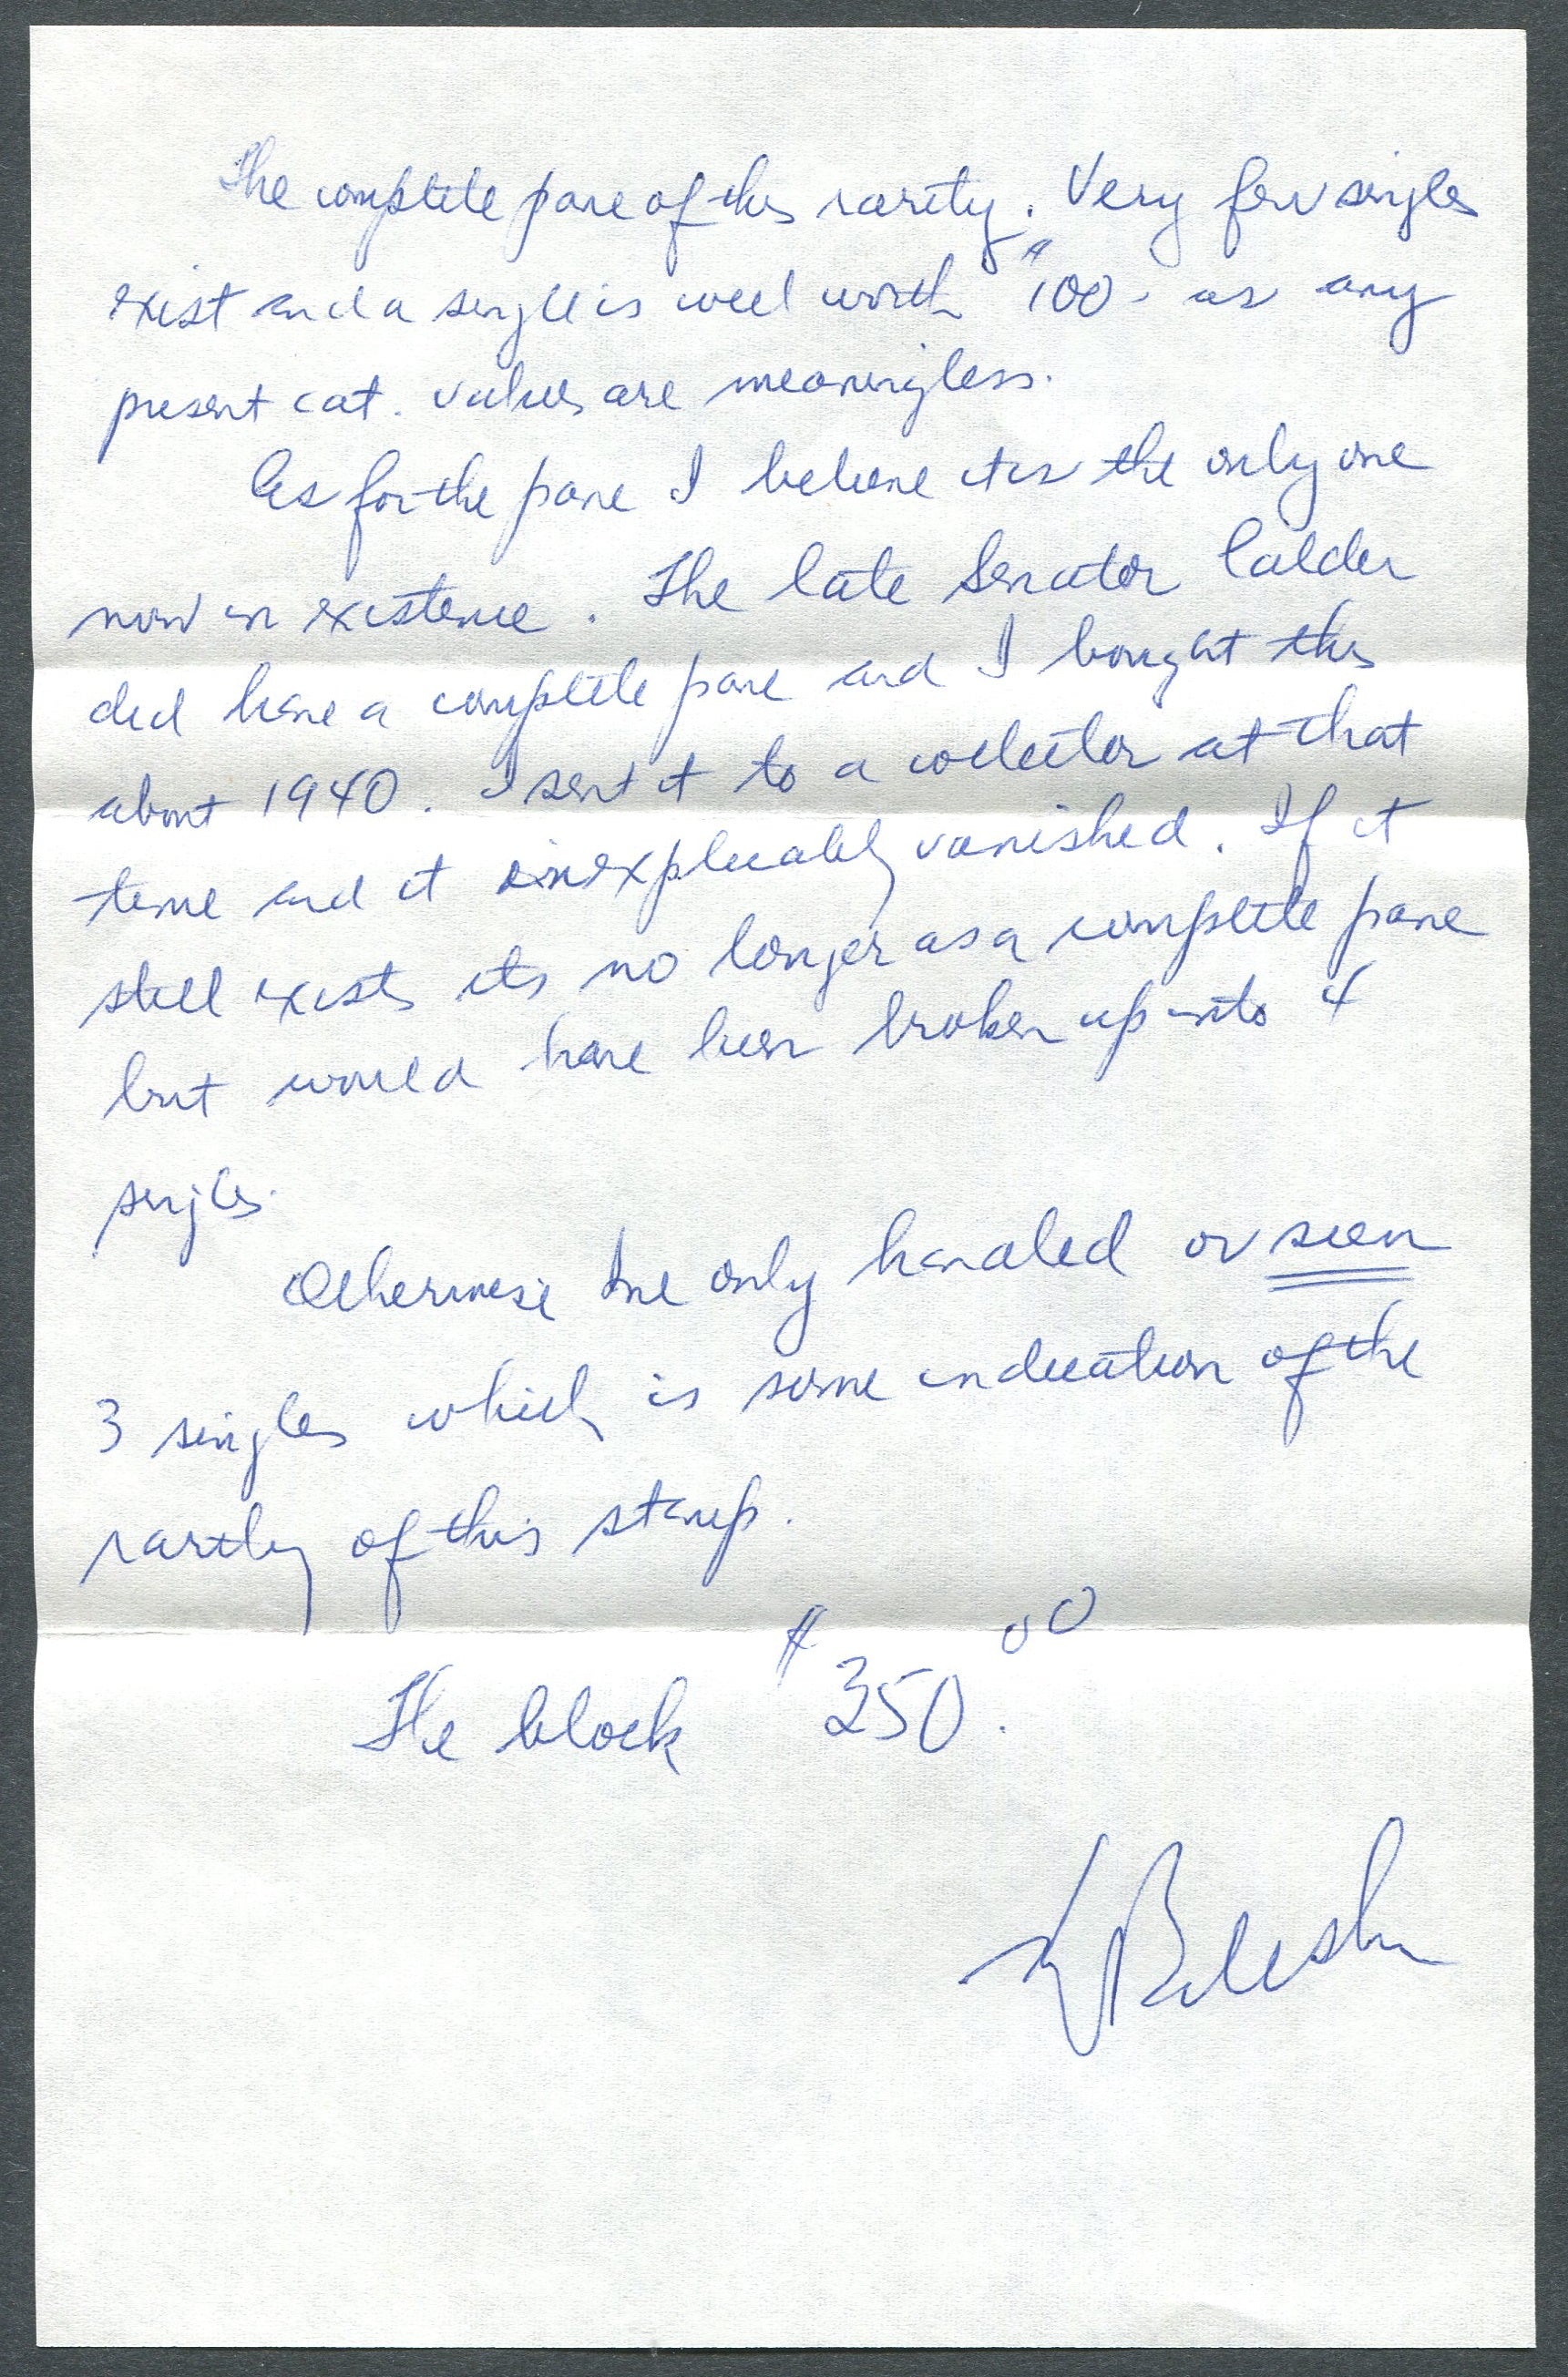 The complete pane of this rarity. Very few singles
exist and a single is well worth $100- as any
present cat. values are meaningless.
As for the pane I believe its the only one
now in existence. The late Senator Calder
did have a complete pane and I bought this
about 1940. I sent it to a collector at that
time and it inexplicably vanished. If it
still exists its no longer as a complete pane
but would have been broken up into 4
singles.
Otherwise I've only handled or seen
3 singles which is some indication of the
rarity of this stamp.
The block $350.00